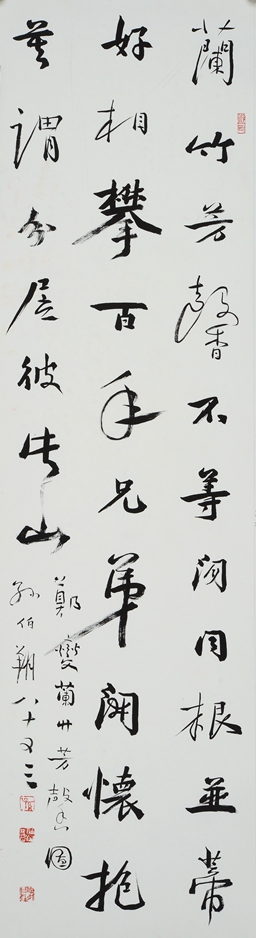 蘭竹芳馨不等闲同根並蒂
好相攀百年兄弟開懷抱
莫謂分居彼此山
鄭燮蘭竹芳馨圖
孫伯翔八十又三